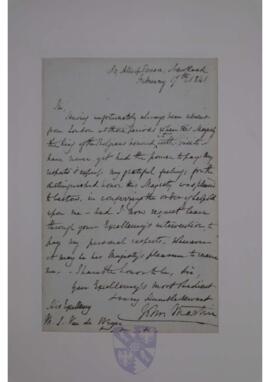 30 Allsop Terrace, New Road
February 19th 1841
Sir,
Having unfortunately always been absent
from London at those periods when His Majesty
the King of the Belgians honored with visits
have never yet had the power to pay my
respects & express my grateful feelings for the
distinguished honor His Majesty was pleased
to bestow, in conferring the order of Leopold
upon me – and I now request leave
through your Excellency's intervention, to
pay my personal respects, whenever
it may be His Majesty's pleasure to receive
me. I have the honor to be, Sir,
Your Excellency's most obedient
loving humble servant
John Martin
His Excellency
M. S. Van de Weyer